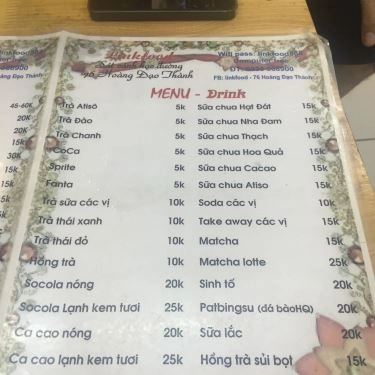 linkfood
76 Hoàng Đạo Thành
FB: linkfood - 76 Hoàng Đạo Thành
MENU - Drink
45-60K Trà Atisô 5k Sữa chua Hạt Đát 15k
20K Trà Đào 5k Sữa chua Nha Đam 15k
20k Trà Chanh 5k Sữa chua Thạch 15k
15k CoCa 5k Sữa chua Hoa Quả 15k
30K Sprite 5k Sữa chua Cacao 15k
15k Fanta 5k Sữa chua Atiso 15k
Trà sữa các vị 10k Soda các vị 15k
Trà thái xanh 10k Take away các vị 15k
Trà thái đỏ 10k Matcha 15k
Hồng trà 10k Matcha lotte 25k
Socola nóng 20k Sinh tố 20k
Socola Lạnh kem tươi 25k Patbingsu (đá bàoHQ) 20k
Ca cao nóng 20k Sữa lắc 20k
Ca cao lạnh kem tươi 25k Hồng trà sủi bọt 15k